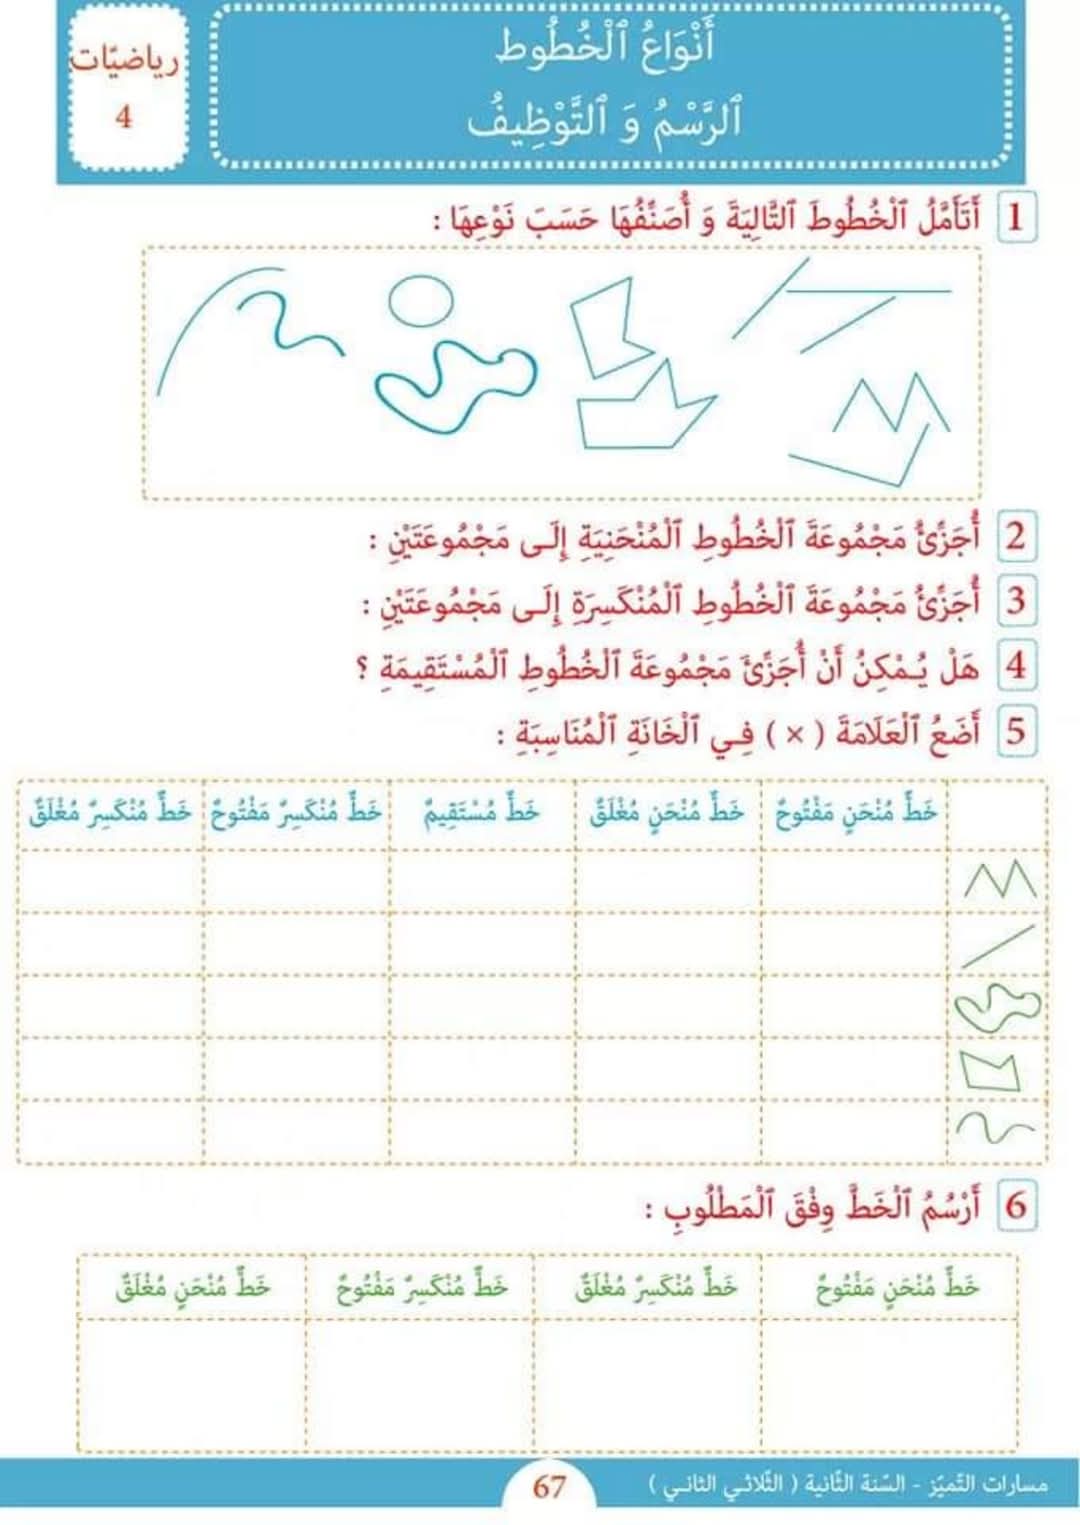 أَنْوَاعُ ٱلْخُطُوط
ٱلرَّسْمُ وَ ٱلتَّوْظِيفُ
رياضيّات
4
1 أَتَأَمَّلُ ٱلْخُطُوطَ ٱلتَّالِيَةَ وَ أُصَنِّفُهَا حَسَبَ نَوْعِهَا :
2 أُجَزِّئُ مَجْمُوعَةَ ٱلْخُطُوطِ ٱلْمُنْحَنِيَةِ إِلَـى مَجْمُوعَتَيْنِ :
3 أُجَزِّئُ مَجْمُوعَةَ ٱلْخُطُوطِ ٱلْمُنْكَسِرَةِ إِلَـى مَجْمُوعَتَيْنِ :
4 هَلْ يُـمْكِنُ أَنْ أُجَزِّئَ مَجْمُوعَةَ ٱلْخُطُوطِ ٱلْمُسْتَقِيمَةِ ؟
5 أَضَعُ ٱلْعَلَامَةَ ( × ) فِـي ٱلْخَانَةِ ٱلْمُنَاسِبَةِ :
خَطٌّ مُنْحَنٍ مَفْتُوحٌ خَطٌّ مُنْحَنٍ مُغْلَقٌ خَطٌّ مُسْتَقِيمٌ خَطٌّ مُنْكَسِرٌ مَفْتُوحٌ خَطٌّ مُنْكَسِرٌ مُغْلَقٌ
6 أَرْسُمُ ٱلْخَطَّ وِفْقَ ٱلْمَطْلُوبِ :
خَطٌّ مُنْحَنٍ مَفْتُوحٌ خَطٌّ مُنْكَسِرٌ مُغْلَقٌ خَطٌّ مُنْكَسِرٌ مَفْتُوحٌ خَطٌّ مُنْحَنٍ مُغْلَقٌ
مسارات التّميّز - السّنة الثّانية ( الثّلاثـي الثانـي )
67